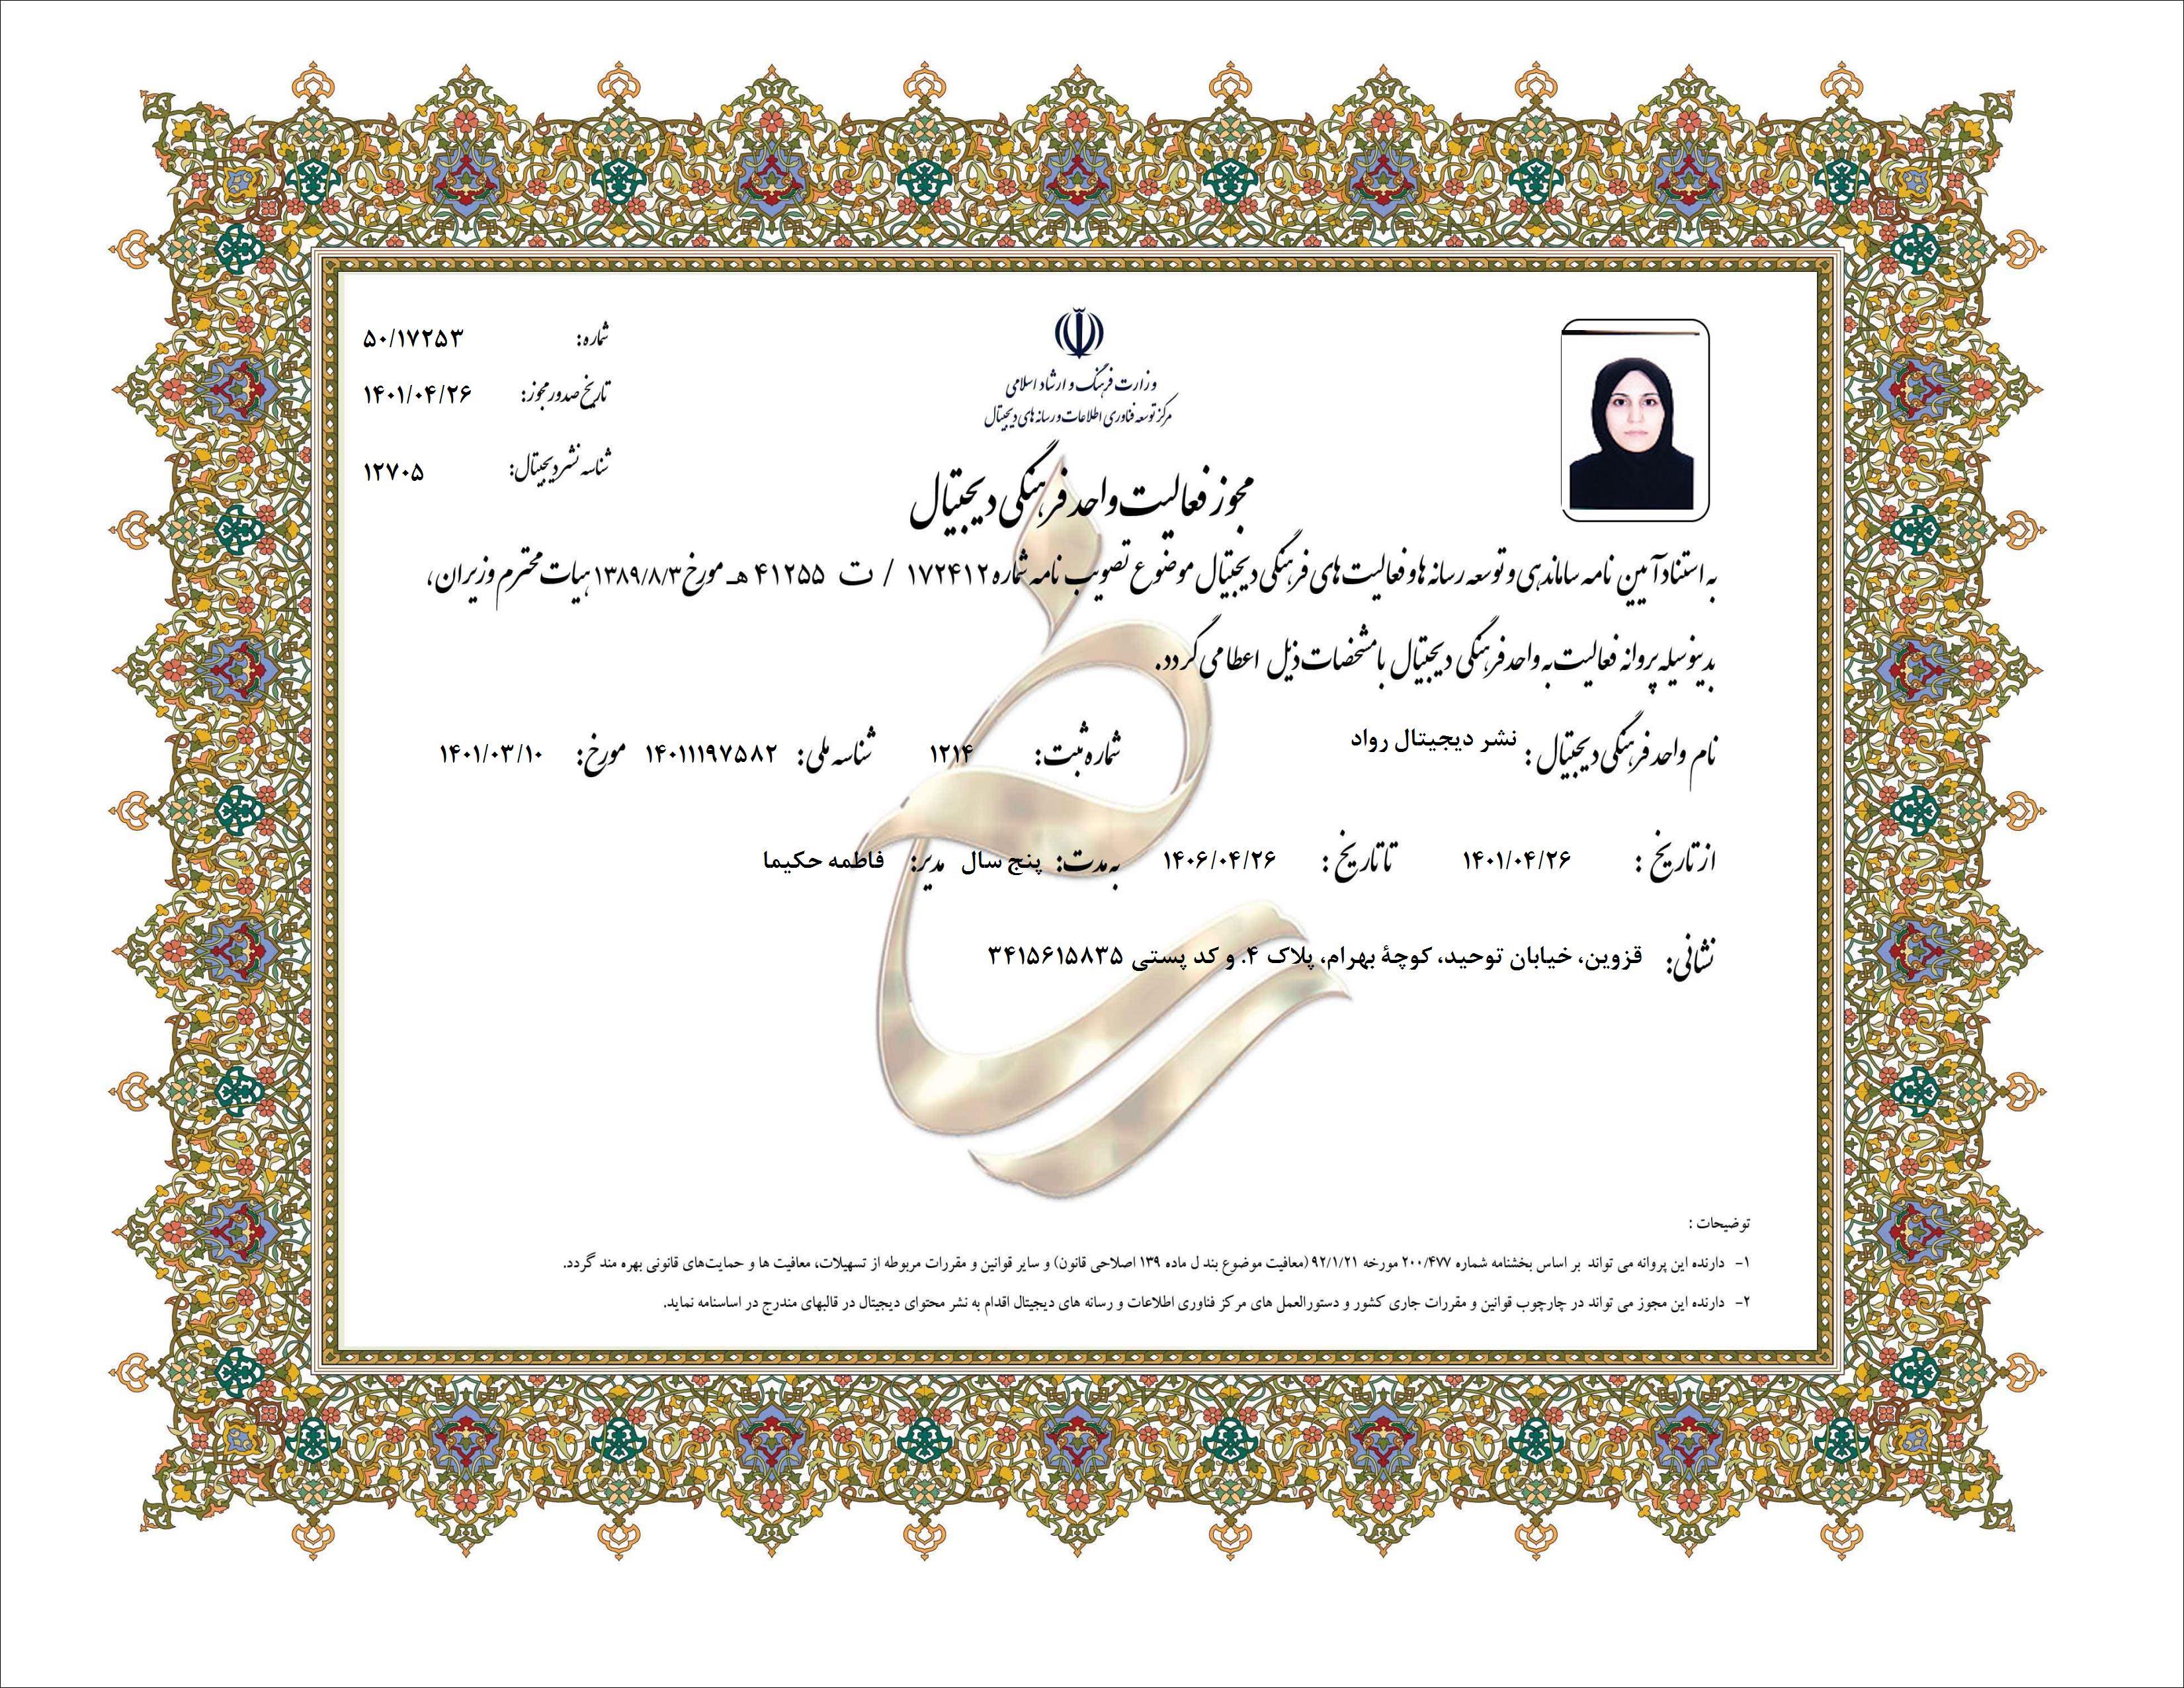 وزارت فرهنگ و ارشاد اسلامی
مرکز توسعه فناوری اطلاعات و رسانه های دیجیتال
شماره: ۵۰/۱۷۲۵۳
تاریخ صدور مجوز: ۱۴۰۱/۰۴/۲۶
شناسه نشر دیجیتال: ۱۲۷۰۵
مجوز فعالیت واحد فرهنگی دیجیتال
به استناد آیین نامه ساماندهی و توسعه رسانه ها و فعالیت های فرهنگی دیجیتال موضوع تصویب نامه شماره ۱۷۲۴۱۲ / ت ۴۱۲۵۵ هـ مورخ ۱۳۸۹/۸/۳ هیات محترم وزیران،
بدینوسیله پروانه فعالیت به واحد فرهنگی دیجیتال با مشخصات ذیل اعطا می گردد.
نام واحد فرهنگی دیجیتال : نشر دیجیتال رواد شماره ثبت: ۱۲۱۴ شناسه ملی: ۱۴۰۱۱۱۹۷۵۸۲ مورخ: ۱۴۰۱/۰۳/۱۰
از تاریخ : ۱۴۰۱/۰۴/۲۶ تا تاریخ : ۱۴۰۶/۰۴/۲۶ به مدت: پنج سال مدیر: فاطمه حکیما
نشانی: قزوین، خیابان توحید، کوچهٔ بهرام، پلاک ۴. و کد پستی ۳۴۱۵۶۱۵۸۳۵
توضیحات :
۱- دارنده این پروانه می تواند بر اساس بخشنامه شماره ۲۰۰/۴۷۷ مورخه ۹۲/۱/۲۱ (معافیت موضوع بند ل ماده ۱۳۹ اصلاحی قانون) و سایر قوانین و مقررات مربوطه از تسهیلات، معافیت ها و حمایت‌های قانونی بهره مند گردد.
۲- دارنده این مجوز می تواند در چارچوب قوانین و مقررات جاری کشور و دستورالعمل های مرکز فناوری اطلاعات و رسانه های دیجیتال اقدام به نشر محتوای دیجیتال در قالبهای مندرج در اساسنامه نماید.